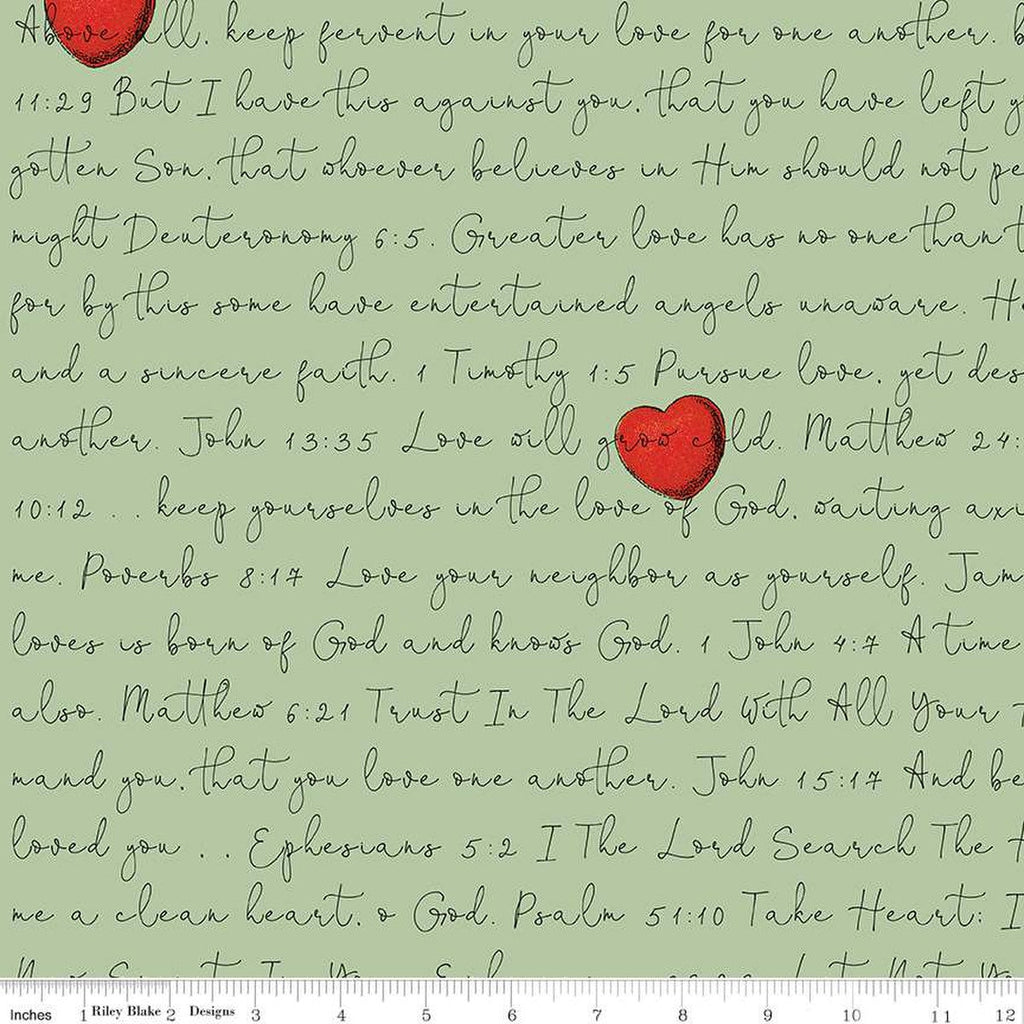 Above all, keep fervent in your love for one another.
11:29 But I have this against you, that you have left
gotten Son, that whoever believes in Him should not pe
might Deuteronomy 6:5. Greater love has no one than
for by this some have entertained angels unaware. He
and a sincere faith. 1 Timothy 1:5 Pursue love, yet des
another. John 13:35 Love will grow cold. Matthew 24:
10:12 . . keep yourselves in the love of God, waiting axi
me. Poverbs 8:17 Love your neighbor as yourself. Jam
loves is born of God and knows God. 1 John 4:7 A time
also. Matthew 6:21 Trust In The Lord With All Your
mand you, that you love one another. John 15:17 And be
loved you . . Ephesians 5:2 I The Lord Search The
me a clean heart, o God. Psalm 51:10 Take Heart; I
Inches 1 Riley Blake 2 Designs 3 4 5 6 7 8 9 10 11 12